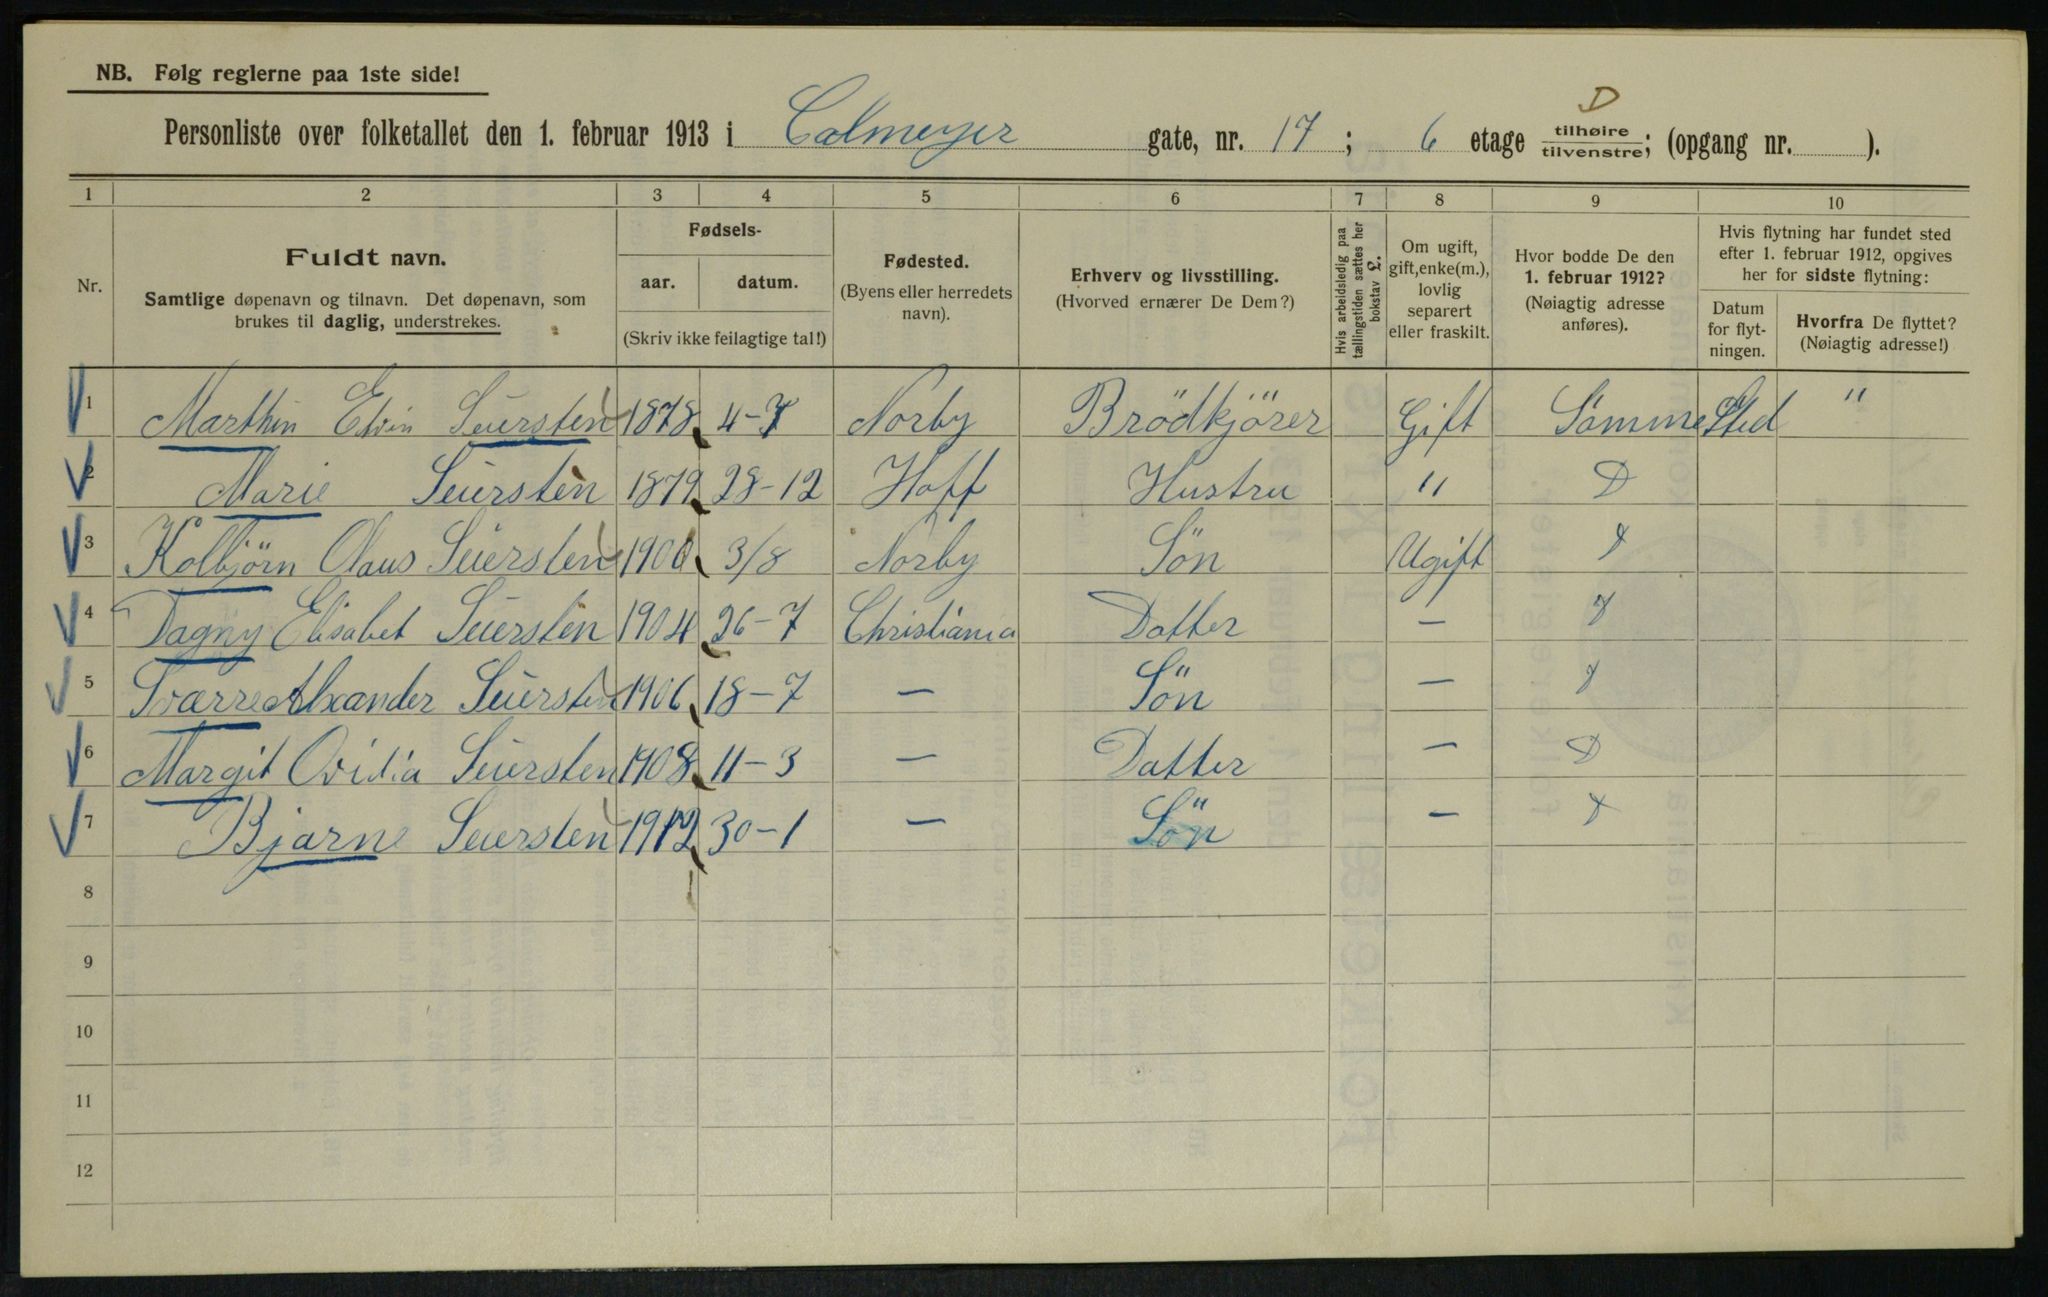 NB. Følg reglerne paa 1ste side!
D
Personliste over folketallet den 1. februar 1913 i Calmeyer gate, nr. 17 ; 6 etage tilhøire / tilvenstre; (opgang nr. ).
1 2 3 4 5 6 7 8 9 10
Nr.
Fuldt navn.
Samtlige døpenavn og tilnavn. Det døpenavn, som
brukes til daglig, understrekes.
Fødsels-
aar. datum.
(Skriv ikke feilagtige tal!)
Fødested.
(Byens eller herredets
navn).
Erhverv og livsstilling.
(Hvorved ernærer De Dem?)
Hvis arbeidsledig paa
tællingstiden sættes her
bokstav L.
Om ugift,
gift, enke(m.),
lovlig
separert
eller fraskilt.
Hvor bodde De den
1. februar 1912?
(Nøiagtig adresse
anføres).
Hvis flytning har fundet sted
efter 1. februar 1912, opgives
her for sidste flytning:
Datum
for flyt-
ningen.
Hvorfra De flyttet?
(Nøiagtig adresse!)
1 Marthin Edvin Seiersten 1878 4-7 Norby Brödkjörer Gift Samme Sted "
2 Marie Seiersten 1879 28-12 Hoff Hustru " D
3 Kolbjörn Olaus Seiersten 1900 3/8 Norby Sön Ugift
4 Dagny Elisabet Seiersten 1904 26-7 Christiania Datter —
5 Sværre Alxander Seiersten 1906 18-7 — Sön —
6 Margit Ovidia Seiersten 1908 11-3 — Datter — D
7 Bjarne Seiersten 1912 30-1 — Sön —
8
9
10
11
12